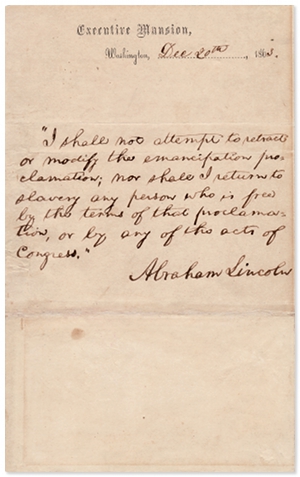 Executive Mansion,
Washington, Dec 20th, 1863.
"I shall not attempt to retract
or modify the emancipation pro-
clamation; nor shall I return to
slavery any person who is free
by the terms of that proclama-
tion, or by any of the acts of
Congress."
Abraham Lincoln